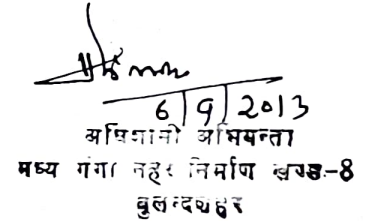 6/9/2013
अधिशासी अभियन्ता
मध्य गंगा नहर निर्माण खण्ड-8
बुलन्दशहर